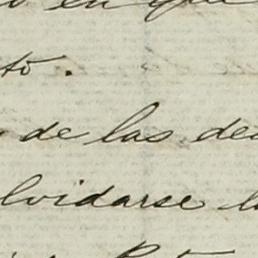 en que
to.
de las de
lvidarse l